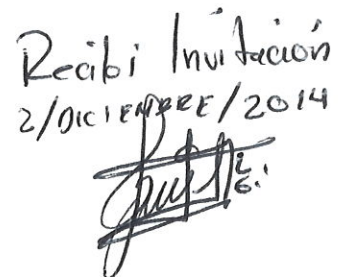 Recibi Invitación
2/DICIEMBRE/2014